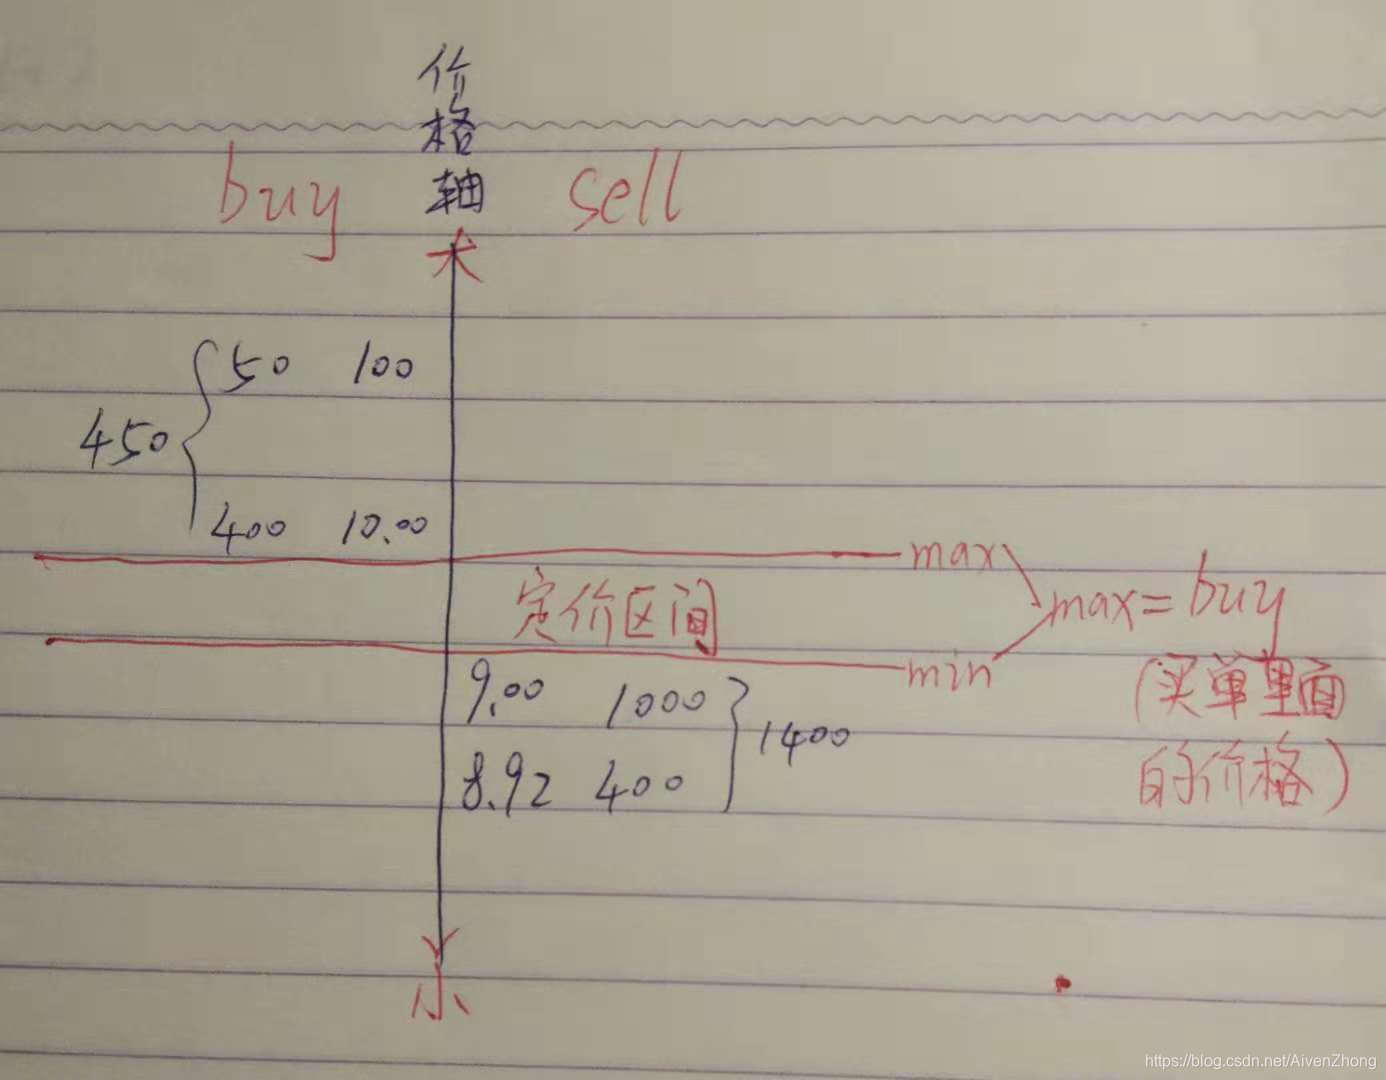 价
格
轴
buy
sell
大
50 100
450
400 10.00
max
定价区间
max = buy
min
(买单里面
的价格)
9.00 1000
1400
8.92 400
小
https://blog.csdn.net/AivenZhong